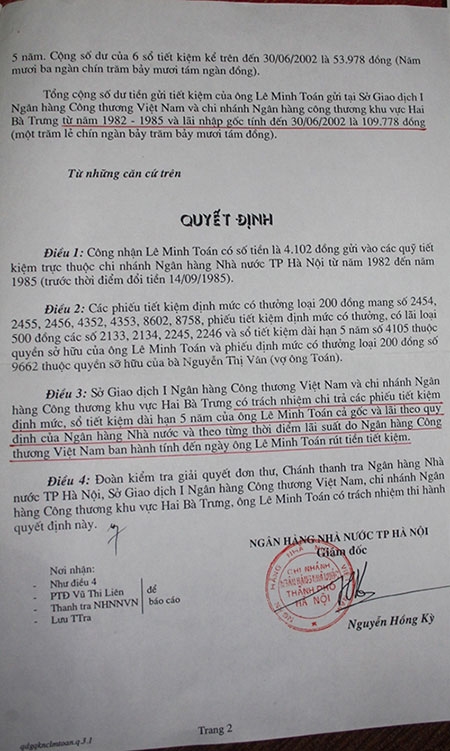 5 năm. Cộng số dư của 6 sổ tiết kiệm kể trên đến 30/06/2002 là 53.978 đồng (Năm
mươi ba ngàn chín trăm bảy mươi tám ngàn đồng).
Tổng cộng số dư tiền gửi tiết kiệm của ông Lê Minh Toán gửi tại Sở Giao dịch I
Ngân hàng Công thương Việt Nam và chi nhánh Ngân hàng công thương khu vực Hai
Bà Trưng từ năm 1982 - 1985 và lãi nhập gốc tính đến 30/06/2002 là 109.778 đồng
(một trăm lẻ chín ngàn bảy trăm bảy mươi tám đồng).
Từ những căn cứ trên
QUYẾT ĐỊNH
Điều 1: Công nhận Lê Minh Toán có số tiền là 4.102 đồng gửi vào các quỹ tiết
kiệm trực thuộc chi nhánh Ngân hàng Nhà nước TP Hà Nội từ năm 1982 đến năm
1985 (trước thời điểm đổi tiền 14/09/1985).
Điều 2: Các phiếu tiết kiệm định mức có thưởng loại 200 đồng mang số 2454,
2455, 2456, 4352, 4353, 8602, 8758, phiếu tiết kiệm định mức có thưởng, có lãi loại
500 đồng các số 2133, 2134, 2245, 2246 và sổ tiết kiệm dài hạn 5 năm số 4105 thuộc
quyền sở hữu của ông Lê Minh Toán và phiếu định mức có thưởng loại 200 đồng số
9662 thuộc quyền sỡ hữu của bà Nguyễn Thị Vân (vợ ông Toán).
Điều 3: Sở Giao dịch I Ngân hàng Công thương Việt Nam và chi nhánh Ngân
hàng Công thương khu vực Hai Bà Trưng có trách nhiệm chi trả các phiếu tiết kiệm
định mức, sổ tiết kiệm dài hạn 5 năm của ông Lê Minh Toán cả gốc và lãi theo quy
định của Ngân hàng Nhà nước và theo từng thời điểm lãi suất do Ngân hàng Công
thương Việt Nam ban hành tính đến ngày ông Lê Minh Toán rút tiền tiết kiệm.
Điều 4: Đoàn kiểm tra giải quyết đơn thư, Chánh thanh tra Ngân hàng Nhà
nước TP Hà Nội, Sở Giao dịch I Ngân hàng Công thương Việt Nam, chi nhánh Ngân
hàng Công thương khu vực Hai Bà Trưng, ông Lê Minh Toán có trách nhiệm thi hành
quyết định này.
NGÂN HÀNG NHÀ NƯỚC TP HÀ NỘI
Giám đốc
CHI NHÁNH
THÀNH PHỐ
HÀ NỘI
Nguyễn Hồng Kỳ
Nơi nhận:
- Như điều 4
- PTĐ Vũ Thi Liên
- Thanh tra NHNNVN
- Lưu TTra
để
báo cáo
Trang 2